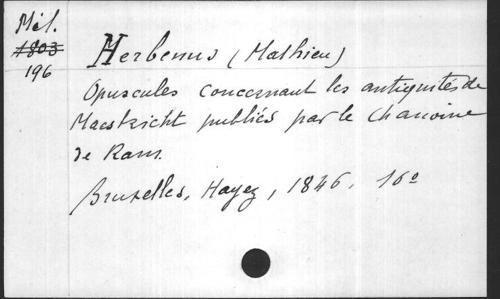 Mél.
1803
196
Herbenus (Mathieu)
Opuscules concernant les antiquités de
Maestricht publiés par le Chanoine
de Ram.
Bruxelles, Hayez, 1846, 16º